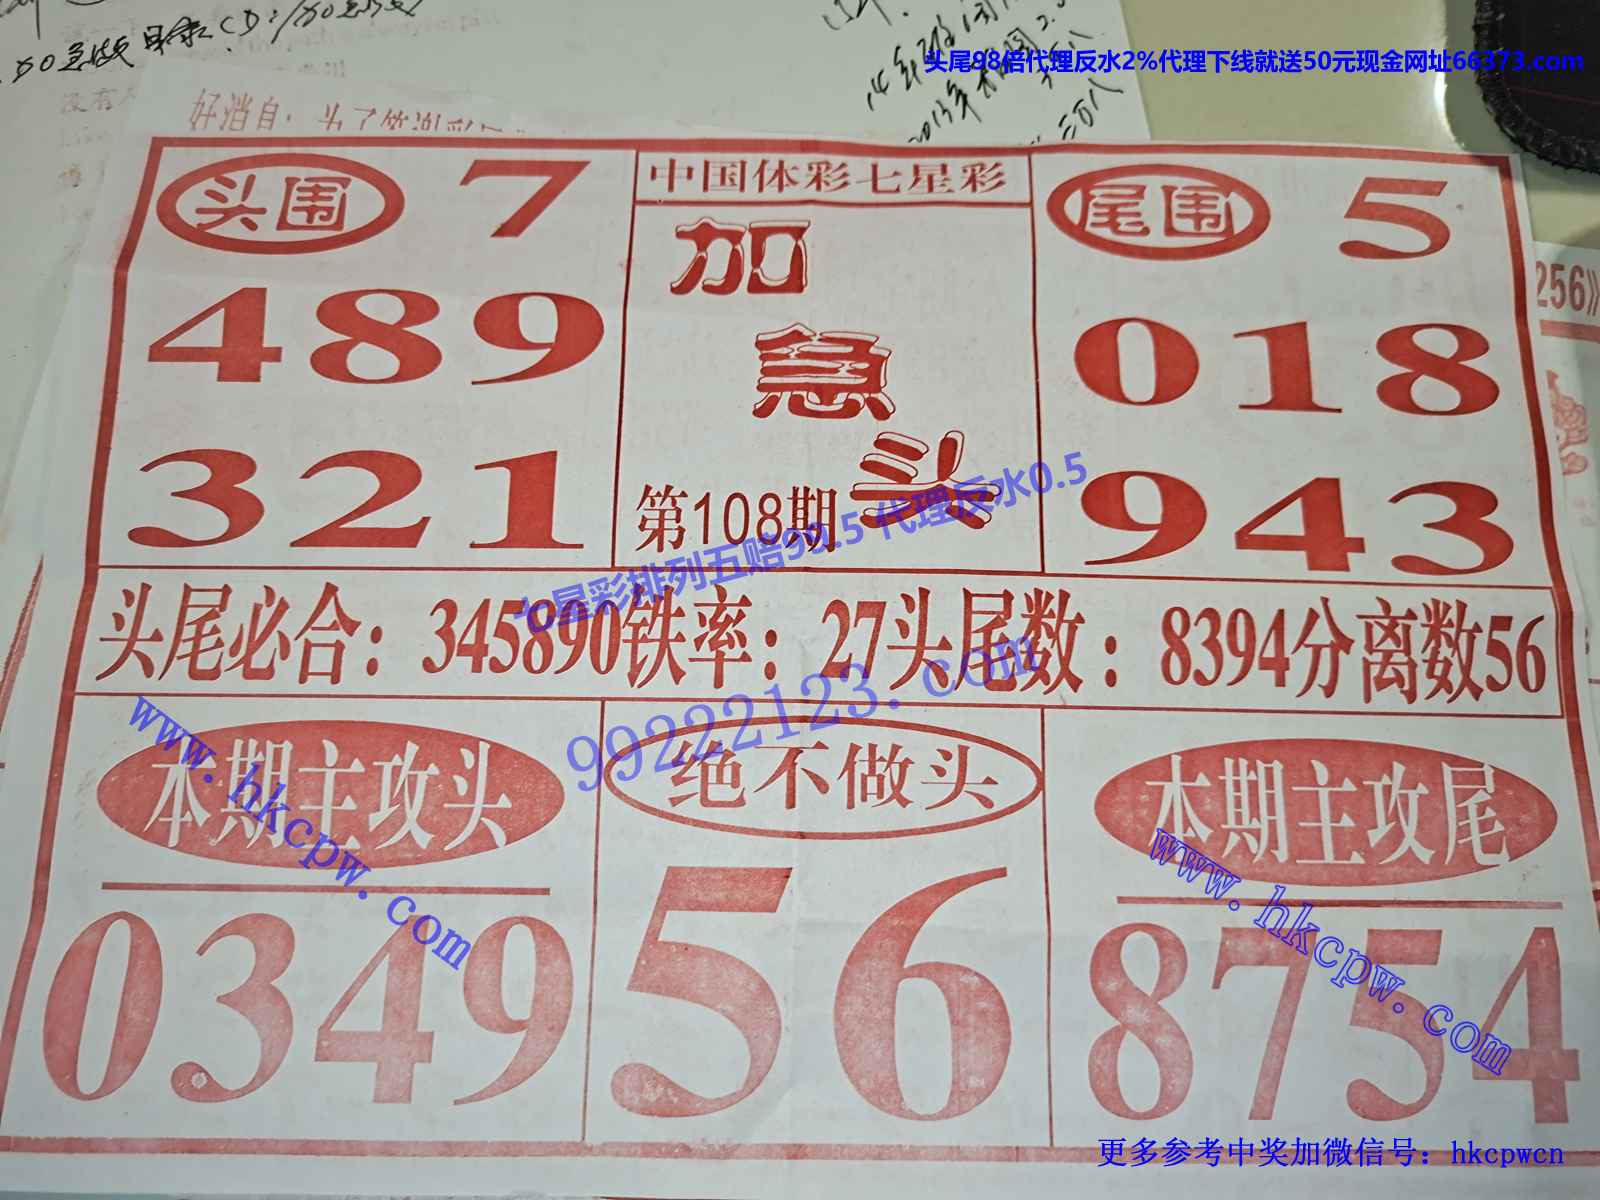 头尾98倍代理反水2%代理下线就送50元现金网址66373.com
好消息：为了答谢彩民
256》
头围 7
489
321
中国体彩七星彩
加
急
头
第108期
尾围 5
018
943
七星彩排列五赔99.5 代理反水0.5
头尾必合：345890铁率：27头尾数：8394分离数56
99222123.com
www.hkcpw.com
本期主攻头
0349
绝不做头
56
本期主攻尾
8754
www.hkcpw.com
更多参考中奖加微信号：hkcpwcn